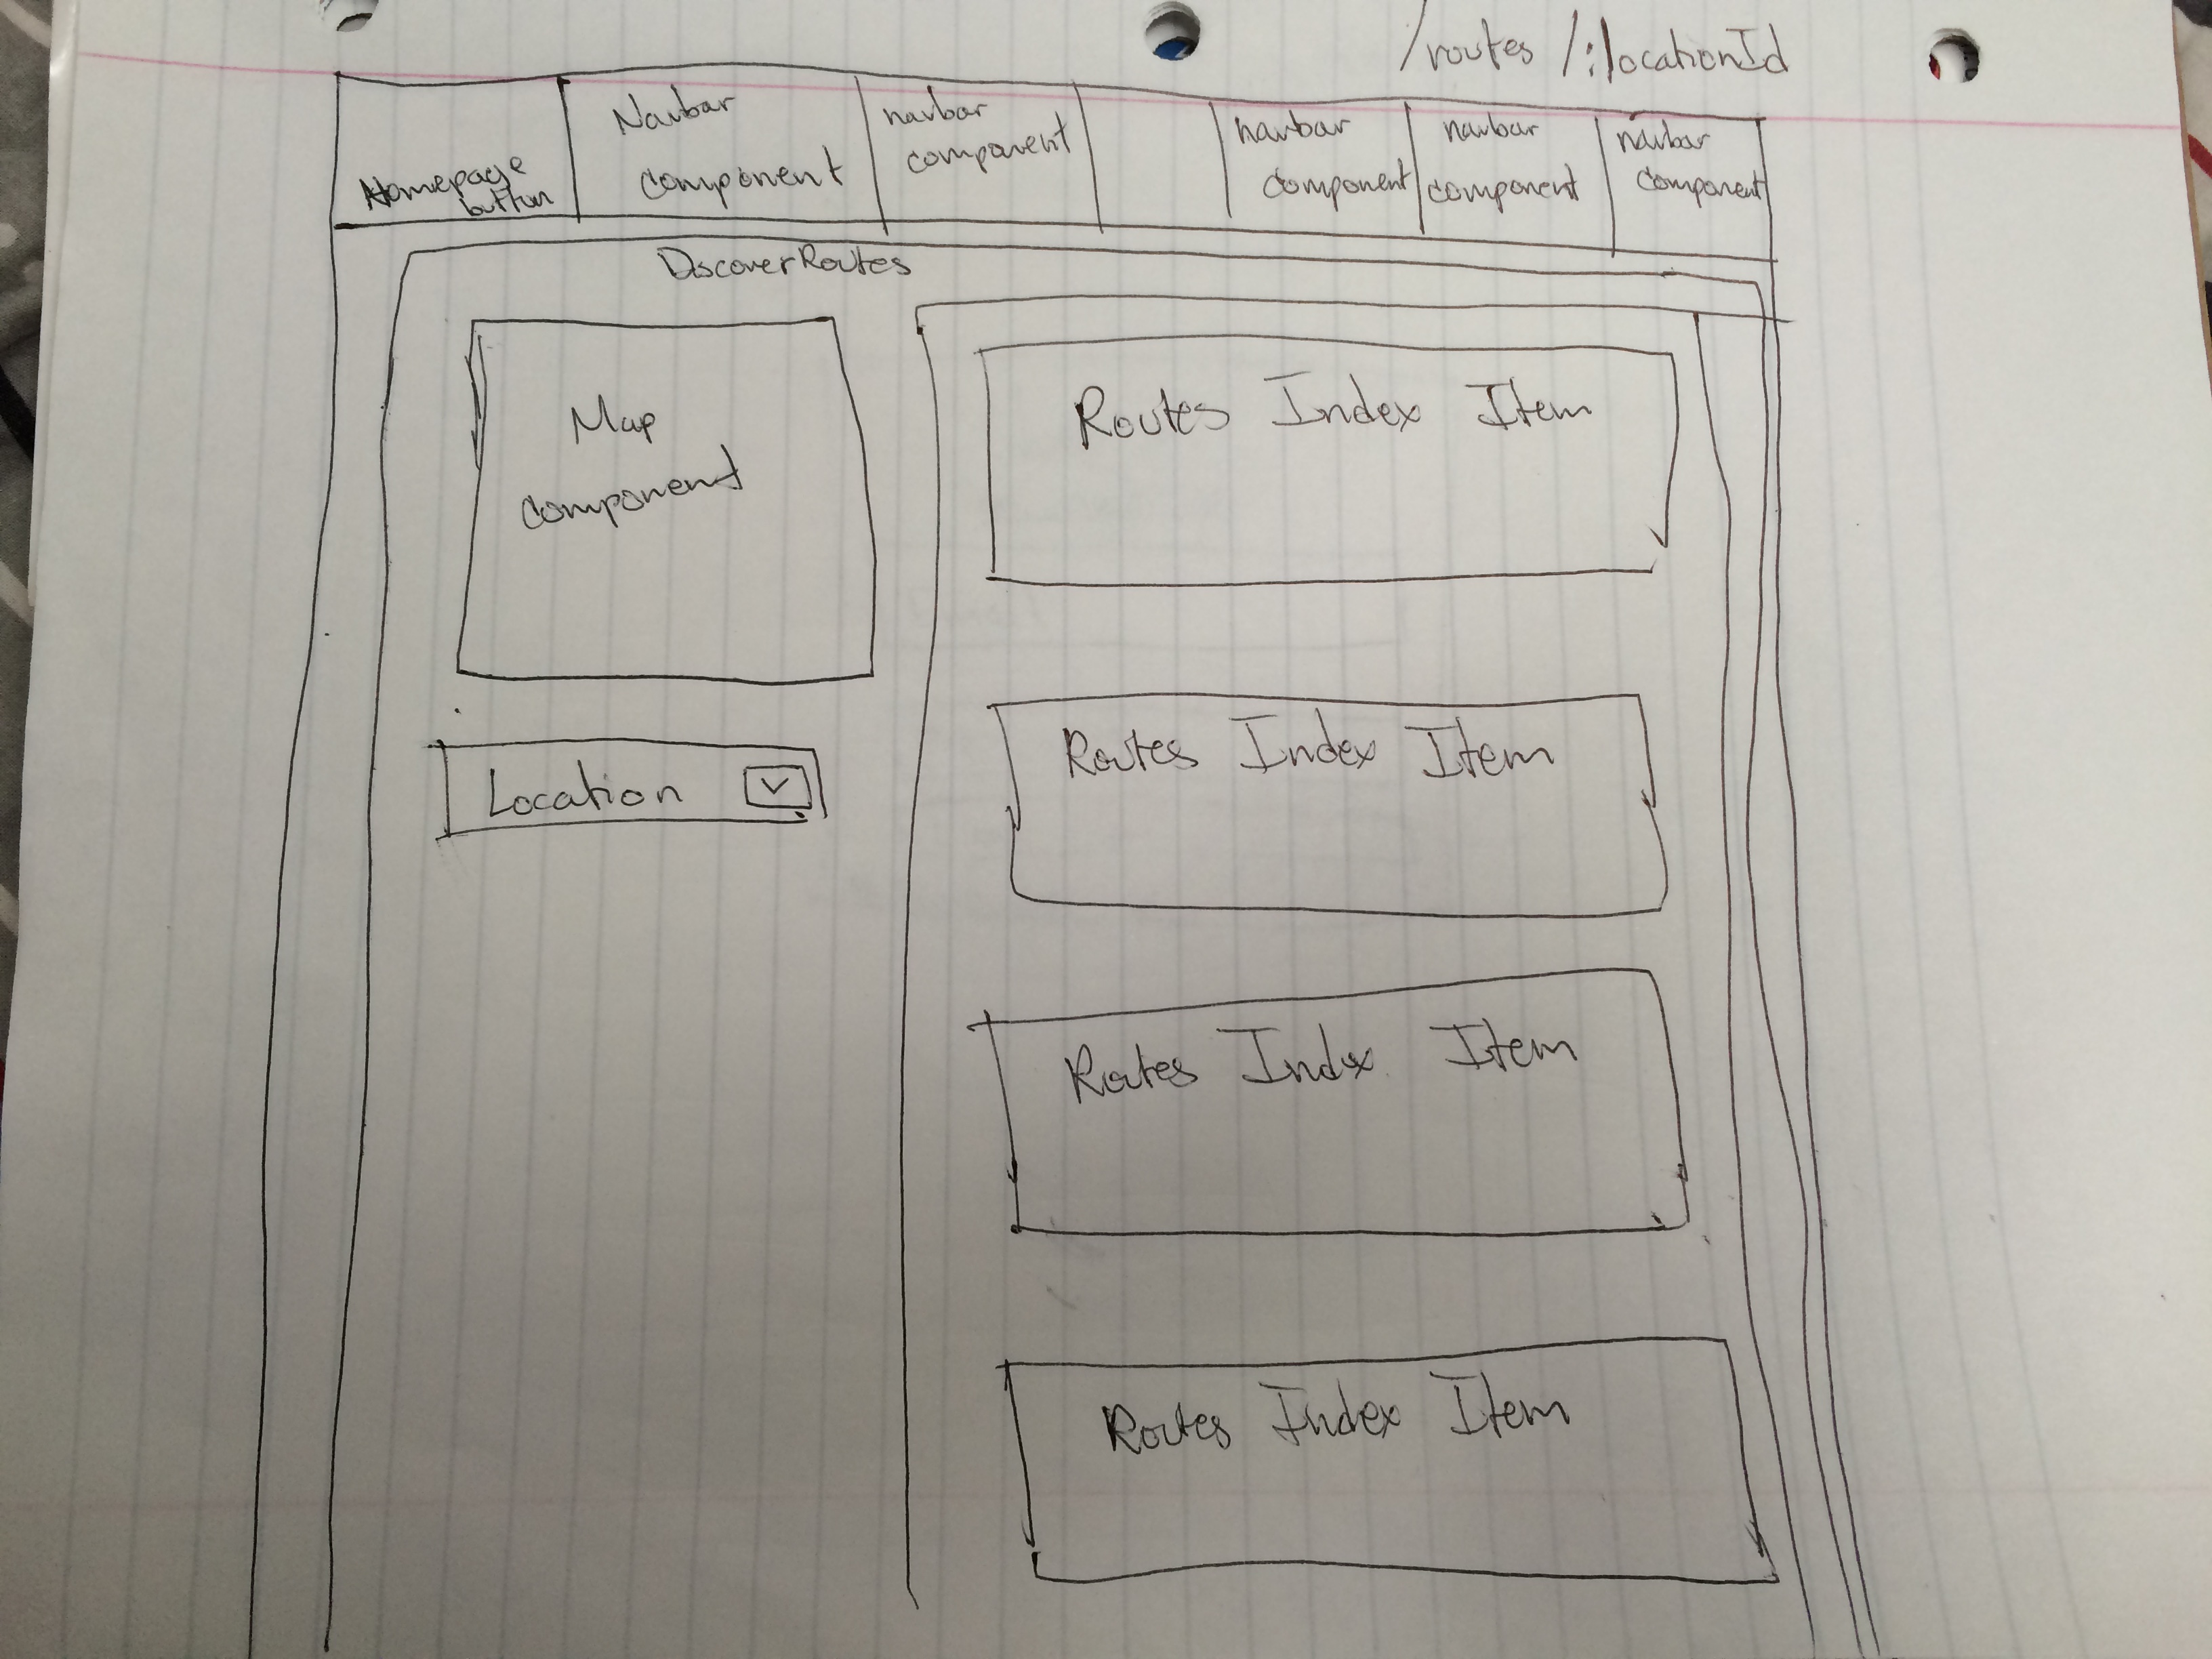 /routes/:locationId
Homepage
button
Navbar
component
navbar
component
navbar
component
navbar
component
navbar
component
DiscoverRoutes
Map
component
Location
Routes Index Item
Routes Index Item
Routes Index Item
Routes Index Item